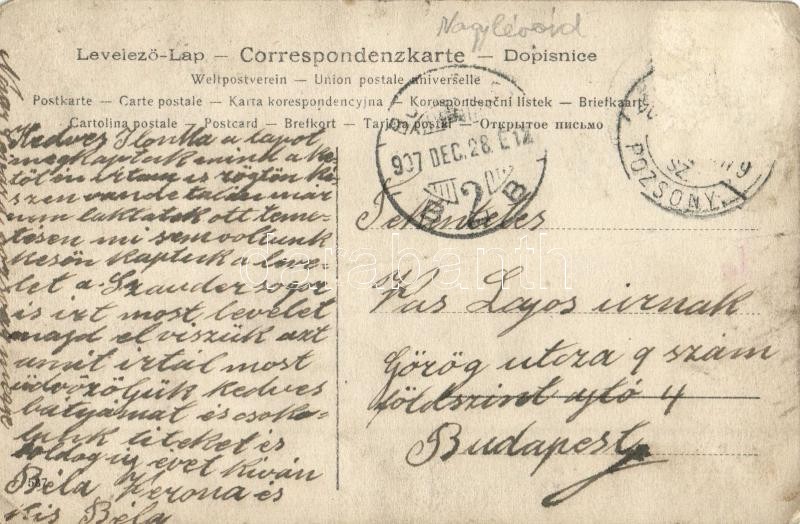 Nagylévárd
Levelező-Lap — Correspondenzkarte — Dopisnice
Weltpostverein — Union postale universelle
Postkarte — Carte postale — Karta korespondencyjna — Korespondenční lístek — Briefkaart
Cartolina postale — Postcard — Brefkort — Tarjeta postal — Открытое письмо
907 DEC. 28. E 12
2
B
POZSONY
Kedves Ilonka a lapot
megkaptuk mink a ke
töt in irtam is rögtön ki
szen vande talán már
nem laktatok ott teme
tésen mi sem voltunk
késön kaptuk a leve
let a Szauder
is irt most levelet
majd el viszük azt
amit irtál most
üdvözöljük kedves
bátyámat és csoko
lunk titeket es
boldog uj évet kiván
Béla es
kis Béla
537
Tekintetes
Vas Lajos úrnak
Görög utcza 9 szám
földszint ajtó 4
Budapest
darabanth